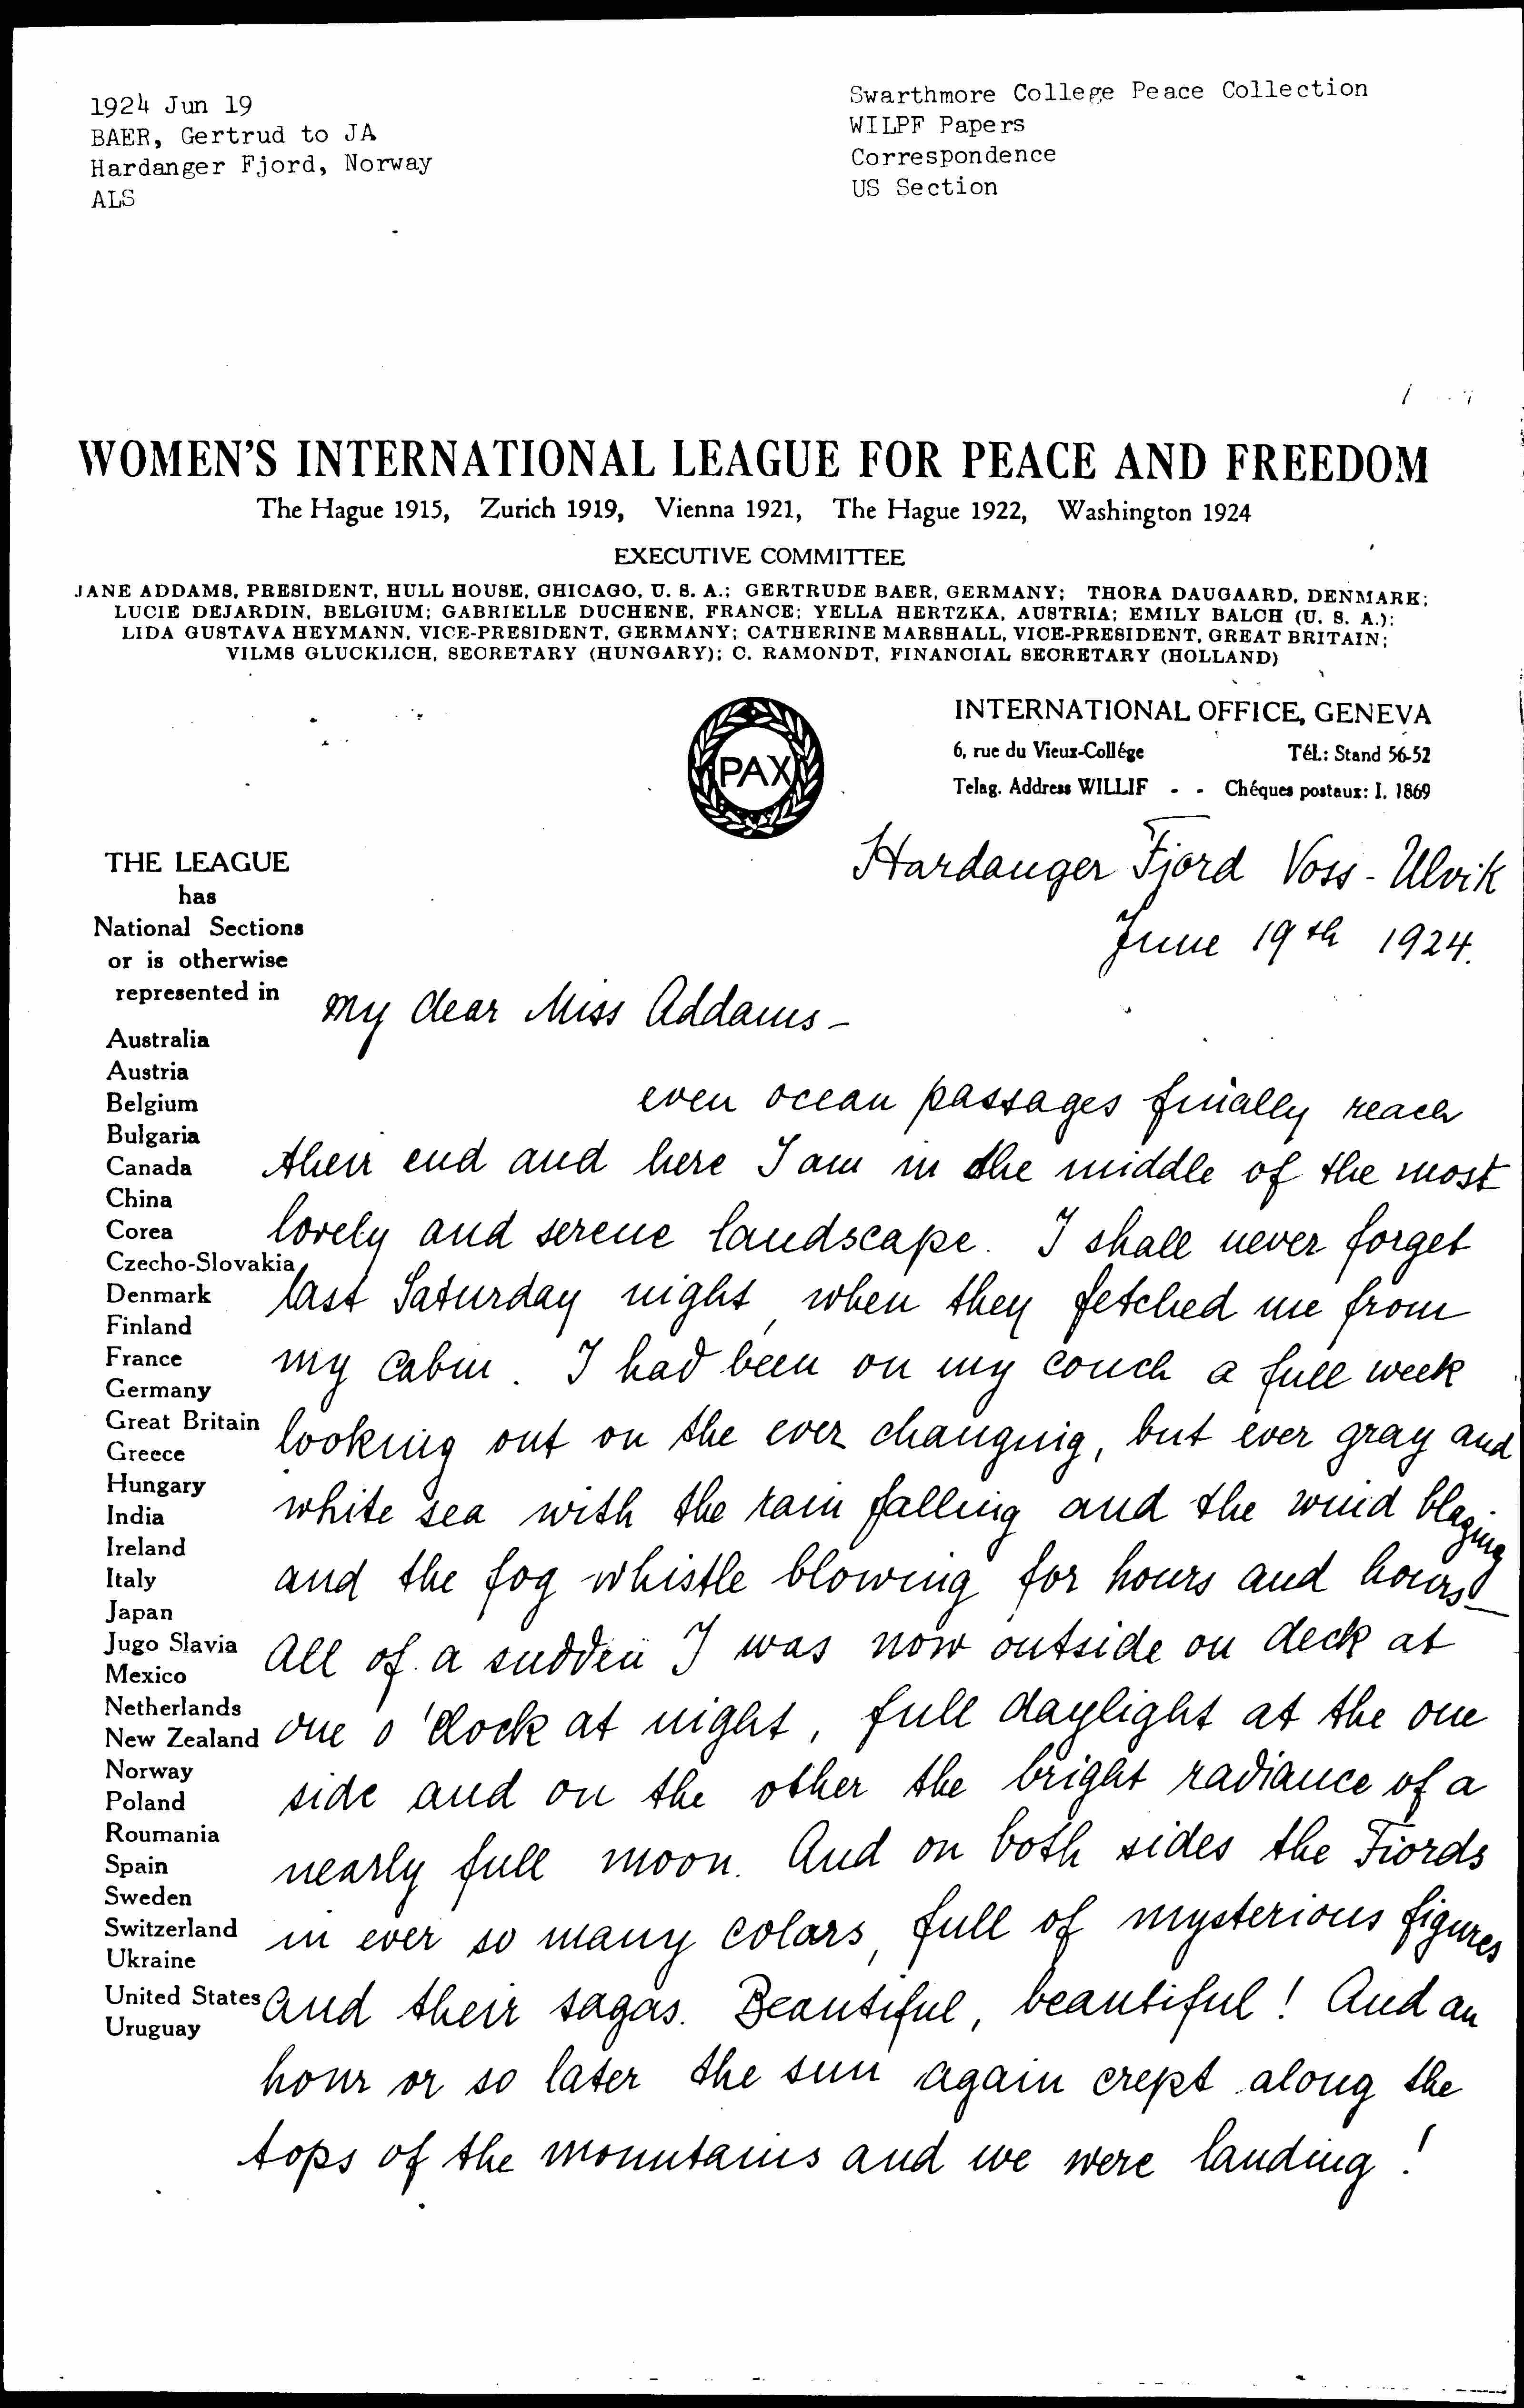 1924 Jun 19
BAER, Gertrud to JA
Hardanger Fjord, Norway
ALS
Swarthmore College Peace Collection
WILPF Papers
Correspondence
US Section
WOMEN'S INTERNATIONAL LEAGUE FOR PEACE AND FREEDOM
The Hague 1915, Zurich 1919, Vienna 1921, The Hague 1922, Washington 1924
EXECUTIVE COMMITTEE
JANE ADDAMS, PRESIDENT, HULL HOUSE, CHICAGO, U. S. A.; GERTRUDE BAER, GERMANY; THORA DAUGAARD, DENMARK;
LUCIE DEJARDIN, BELGIUM; GABRIELLE DUCHENE, FRANCE; YELLA HERTZKA, AUSTRIA; EMILY BALCH (U. S. A.);
LIDA GUSTAVA HEYMANN, VICE-PRESIDENT, GERMANY; CATHERINE MARSHALL, VICE-PRESIDENT, GREAT BRITAIN;
VILMS GLUCKLICH, SECRETARY (HUNGARY); C. RAMONDT, FINANCIAL SECRETARY (HOLLAND)
PAX
INTERNATIONAL OFFICE, GENEVA
6, rue du Vieux-Collége Tél.: Stand 56-52
Telag. Address WILLIF - - Chéques postaux: I. 1869
THE LEAGUE
has
National Sections
or is otherwise
represented in
Australia
Austria
Belgium
Bulgaria
Canada
China
Corea
Czecho-Slovakia
Denmark
Finland
France
Germany
Great Britain
Greece
Hungary
India
Ireland
Italy
Japan
Jugo Slavia
Mexico
Netherlands
New Zealand
Norway
Poland
Roumania
Spain
Sweden
Switzerland
Ukraine
United States
Uruguay
Hardanger Fjord Voss - Ulvik
June 19th 1924.
My dear Miss Addams -
even ocean passages finally reach
their end and here I am in the middle of the most
lovely and serene landscape. I shall never forget
last Saturday night, when they fetched me from
my cabin. I had been on my couch a full week
looking out on the ever changing, but ever gray and
white sea with the rain falling and the wind blazing
and the fog whistle blowing for hours and hours
All of a sudden I was now outside on deck at
one o'clock at night, full daylight at the one
side and on the other the bright radiance of a
nearly full moon. And on both sides the Fiords
in ever so many colors, full of mysterious figures
and their sagas. Beautiful, beautiful! And an
hour or so later the sun again crept along the
tops of the mountains and we were landing!